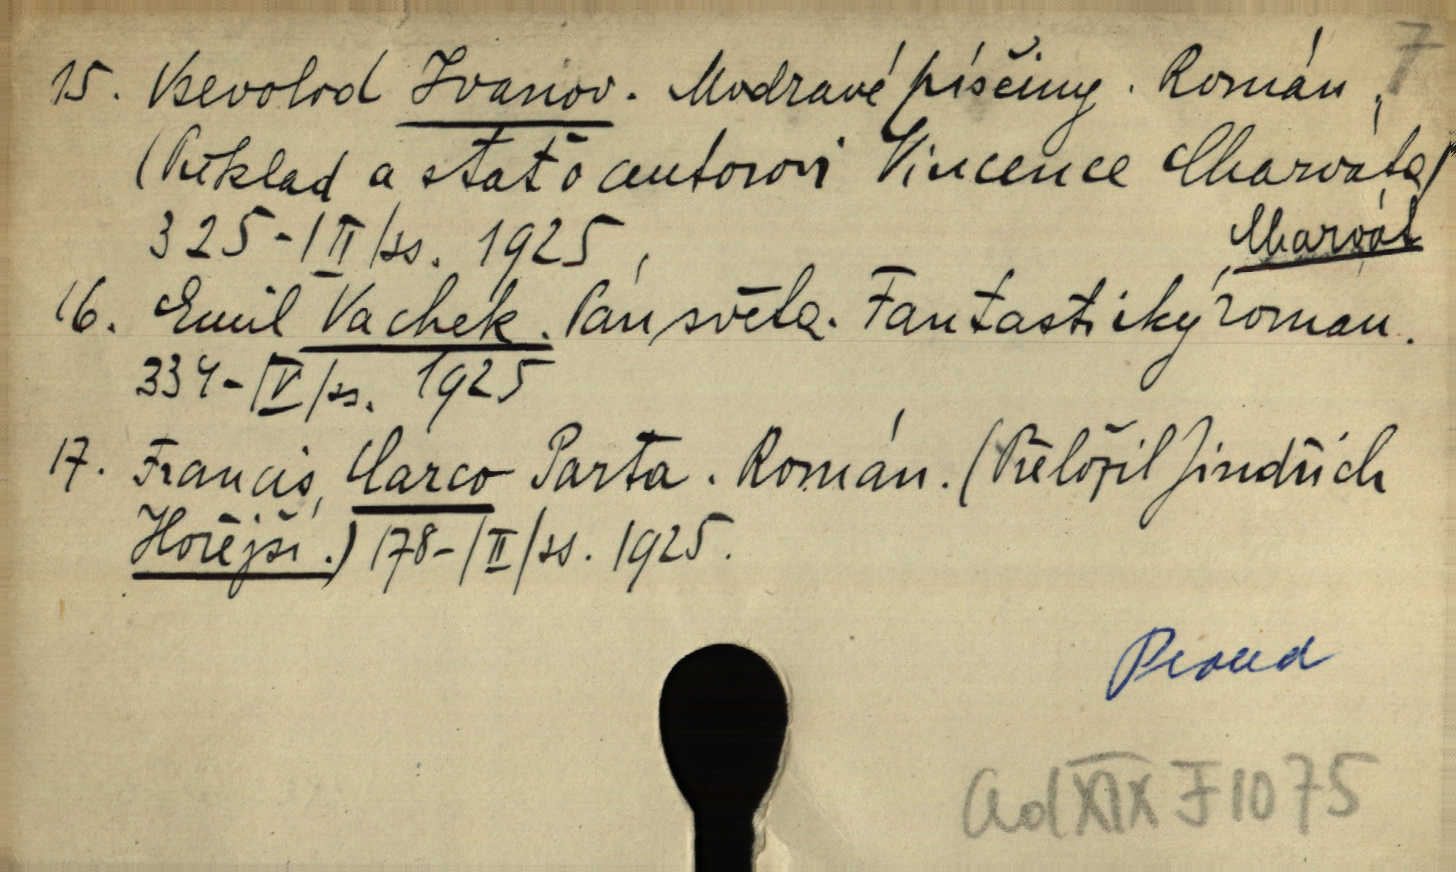 7
15. Vsevolod Ivanov. Modravé písčiny. Román.
(Překlad a stať o autorovi Vincence Charváta)
325-|II|ss. 1925. Charvát
16. Emil Vachek. Pán světa. Fantastický roman.
334-|V|ss. 1925
17. Francis Carco Parta. Román. (Přeložil Jindřich
Hořejší.) 178-|II|ss. 1925.
Proud
ad XIX F 1075